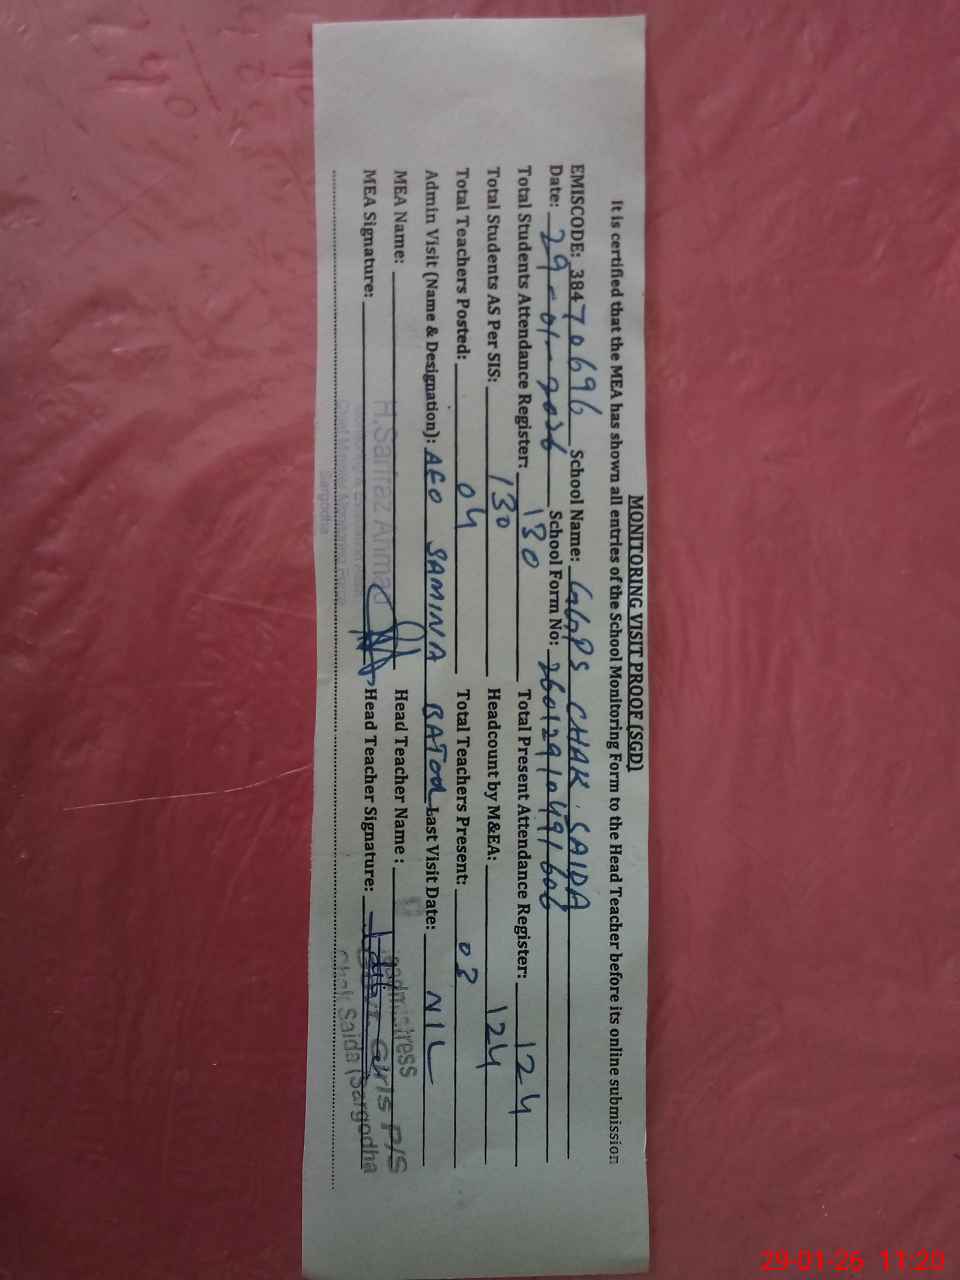 MONITORING VISIT PROOF (SGD)
It is certified that the MEA has shown all entries of the School Monitoring Form to the Head Teacher before its online submission
EMISCODE: 38470696 School Name: GGPS CHAK SAIDA
Date: 29-01-2026 School Form No: 26012910491606
Total Students Attendance Register: 130 Total Present Attendance Register: 124
Total Students AS Per SIS: 130 Headcount by M&EA: 124
Total Teachers Posted: 04 Total Teachers Present: 03
Admin Visit (Name & Designation): AEO SAMINA BATOOL Last Visit Date: NIL
MEA Name: H.Sarfraz Ahmad Head Teacher Name :
MEA Signature: Head Teacher Signature:
Girls P/S
Chak Saida (Sargodha
Sargodha
29-01-25 11:20